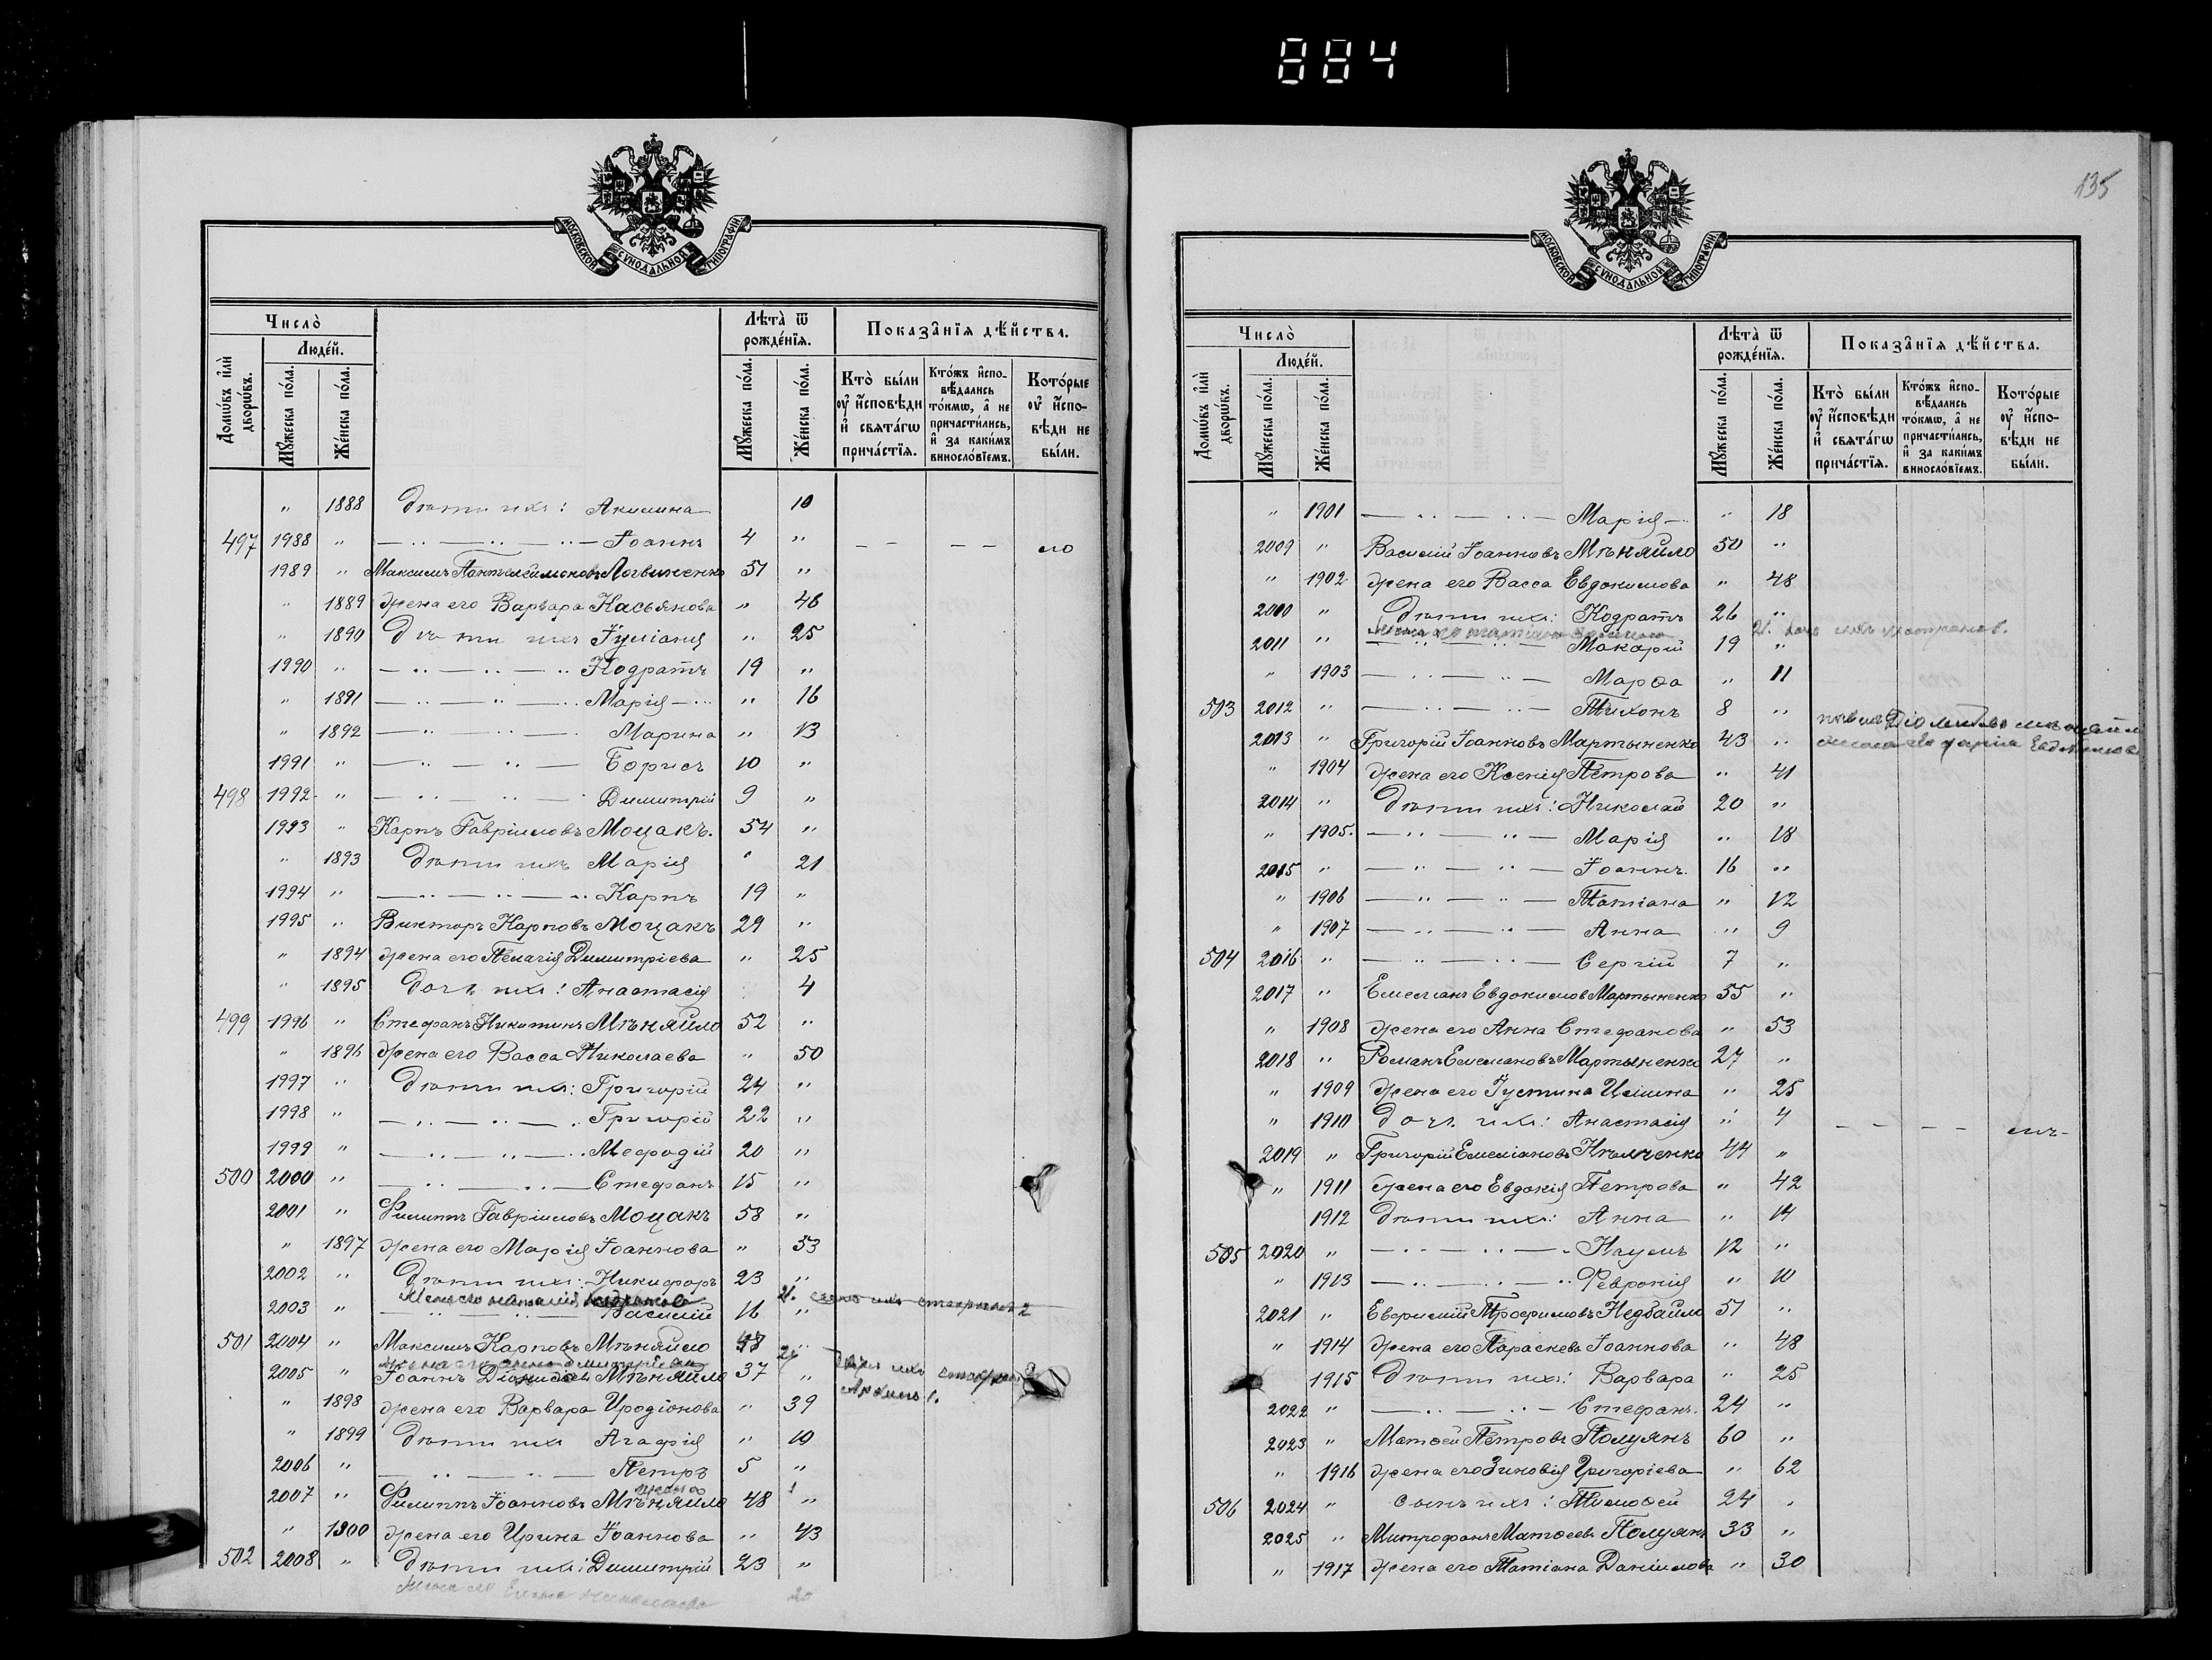 884
МОСКОВСКОЙ СѴНОДАЛЬНОЙ ТИПОГРАФІИ
Число̀
Людéй.
Домѡ́въ и҆лѝ дворѡ́въ.
Мꙋ́жеска по́ла.
Же́нска по́ла.
Лѣта̀ ѿ рожде́нїѧ.
Мꙋ́жеска по́ла.
Же́нска по́ла.
Показа̂нїѧ дѣ́йства.
Кто̀ бы́ли оу҆ и҆́сповѣди и҆ свѧта́гѡ прича́стїѧ.
Кто́жъ и҆спо-вѣ́дались то́кмѡ, а҆ не причасти́лись, и҆ за каки́мъ винослóвїемъ.
Кото́рые оу҆ и҆́спо-вѣди не бы́ли.
" 1888 Дѣти ихъ: Акилина 10
497 1988 " — Іоаннъ 4 " — — — — его
1989 " Максимъ Пантелеимоновъ Логвиненко 51 "
" 1889 Жена его Варвара Касьянова " 46
" 1890 Дѣти ихъ Іуліанія " 25
1990 " — Кодратъ 19 "
" 1891 — Марія " 16
" 1892 — Марина " 13
1991 " — Борисъ 10 "
498 1992 " — Димитрій 9 "
1993 " Карпъ Гавріиловъ Моцакъ. 54 "
" 1893 Дѣти ихъ Марія " 21
1994 " — Карпъ 19 "
1995 " Викторъ Карповъ Моцакъ 29 "
" 1894 Жена его Пелагія Димитріева " 25
" 1895 Дочь ихъ: Анастасія 4
499 1996 " Стефанъ Никитинъ Мѣняйло 52 "
" 1896 Жена его Васса Николаева " 50
1997 " Дѣти ихъ: Григорій 24 "
1998 " — Григорій 22 "
1999 " — Меѳодій 20 "
500 2000 " — Стефанъ 15 "
2001 " Филиппъ Гавріиловъ Моцакъ 58 "
" 1897 Жена его Марія Іоаннова " 53
2002 " Дѣти ихъ: Никифоръ 23 "
2003 " — Василій 16 "
501 2004 " Максимъ Карповъ Мѣняйло "
2005 " Іоаннъ Діонисіевъ Мѣняйло 37 "
" 1898 Жена его Варвара Иродіонова " 39
" 1899 Дѣти ихъ Агафія " 10
2006 " — Петръ 5 "
2007 " Филиппъ Іоанновъ Мѣняйло 48 "
" 1900 Жена его Ирина Іоаннова " 43
502 2008 " Дѣти ихъ: Димитрій 23 "
Жена его Елена Николаева 20
135
МОСКОВСКОЙ СѴНОДАЛЬНОЙ ТИПОГРАФІИ
Число̀
Людéй.
Домѡ́въ и҆лѝ дворѡ́въ.
Мꙋ́жеска по́ла.
Же́нска по́ла.
Лѣта̀ ѿ рожде́нїѧ.
Мꙋ́жеска по́ла.
Же́нска по́ла.
Показа̂нїѧ дѣ́йства.
Кто̀ бы́ли оу҆ и҆́сповѣди и҆ свѧта́гѡ прича́стїѧ.
Кто́жъ и҆спо-вѣ́дались то́кмѡ, а҆ не причасти́лись, и҆ за каки́мъ винослóвїемъ.
Кото́рые оу҆ и҆́спо-вѣди не бы́ли.
" 1901 — Марія " 18
2009 " Василій Іоанновъ Мѣняйло 50 "
" 1902 Жена его Васса Евдокимова " 48
2010 " Дѣти ихъ: Кодратъ 26 "
2011 " — Макарій 19 "
" 1903 — Марѳа " 11
503 2012 " — Тихонъ 8 "
2013 " Григорій Іоанновъ Мартыненко 43 "
" 1904 Жена его Ксенія Петрова " 41
2014 " Дѣти ихъ: Николай 20 "
" 1905 — Марія " 18
2015 " — Іоаннъ 16 "
" 1906 — Татіана " 12
" 1907 — Анна " 9
504 2016 " — Сергій 7 "
2017 " Емеліанъ Евдокимовъ Мартыненко 55 "
" 1908 Жена его Анна Стефанова " 53
2018 " Романъ Емелиановъ Мартыненко 27 "
" 1909 Жена его Іустина Ильина " 25
" 1910 Дочь ихъ: Анастасія " 4 — — — — ихъ
2019 " Григорій Емеліановъ Кѣльченко 44 "
" 1911 Жена его Евдокія Петрова " 42
1912 Дѣти ихъ: Анна " 14
505 2020 " — Наумъ 12 "
" 1913 — Февронія " 10
2021 " Евфимій Трофимовъ Недбайло 51 "
" 1914 Жена его Параскева Іоаннова " 48
1915 Дѣти ихъ: Варвара " 25
2022 " — Стефанъ 24 "
2023 " Матѳей Петровъ Полуянъ 60 "
" 1916 Жена его Зиновія Григоріева " 62
506 2024 " Сынъ ихъ: Тимоѳей 24 "
2025 " Митрофанъ Матѳеевъ Полуянъ 33 "
" 1917 Жена его Татіана Даніилова " 30